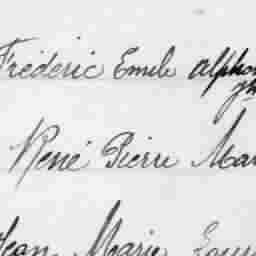 Frédéric Emile alphon
René Pierre Mar
Jean Marie Loui